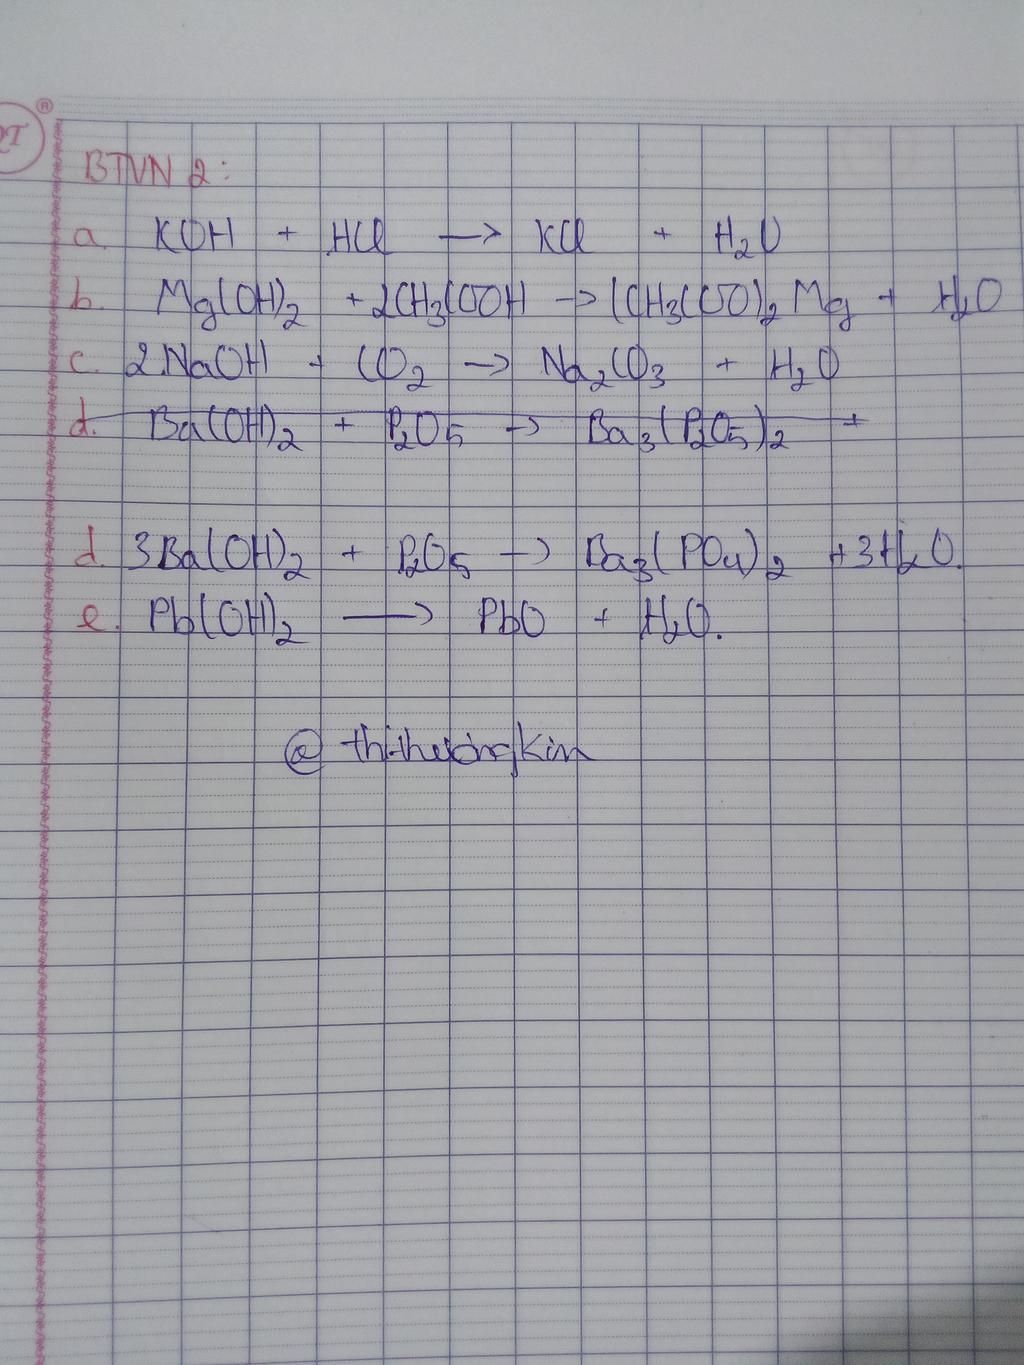 BTVN 2:
a. KOH + HCl → KCl + H₂O
b. Mg(OH)₂ + 2CH₃COOH → (CH₃COO)₂Mg + H₂O
c. 2NaOH + CO₂ → Na₂CO₃ + H₂O
d. Ba(OH)₂ + P₂O₅ → Ba₃(P₂O₅)₂ +
d. 3Ba(OH)₂ + P₂O₅ → Ba₃(PO₄)₂ + 3H₂O.
e. Pb(OH)₂ → PbO + H₂O.
@ thithuongkim